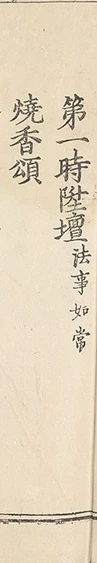 第一時陞壇法事如常
燒香頌